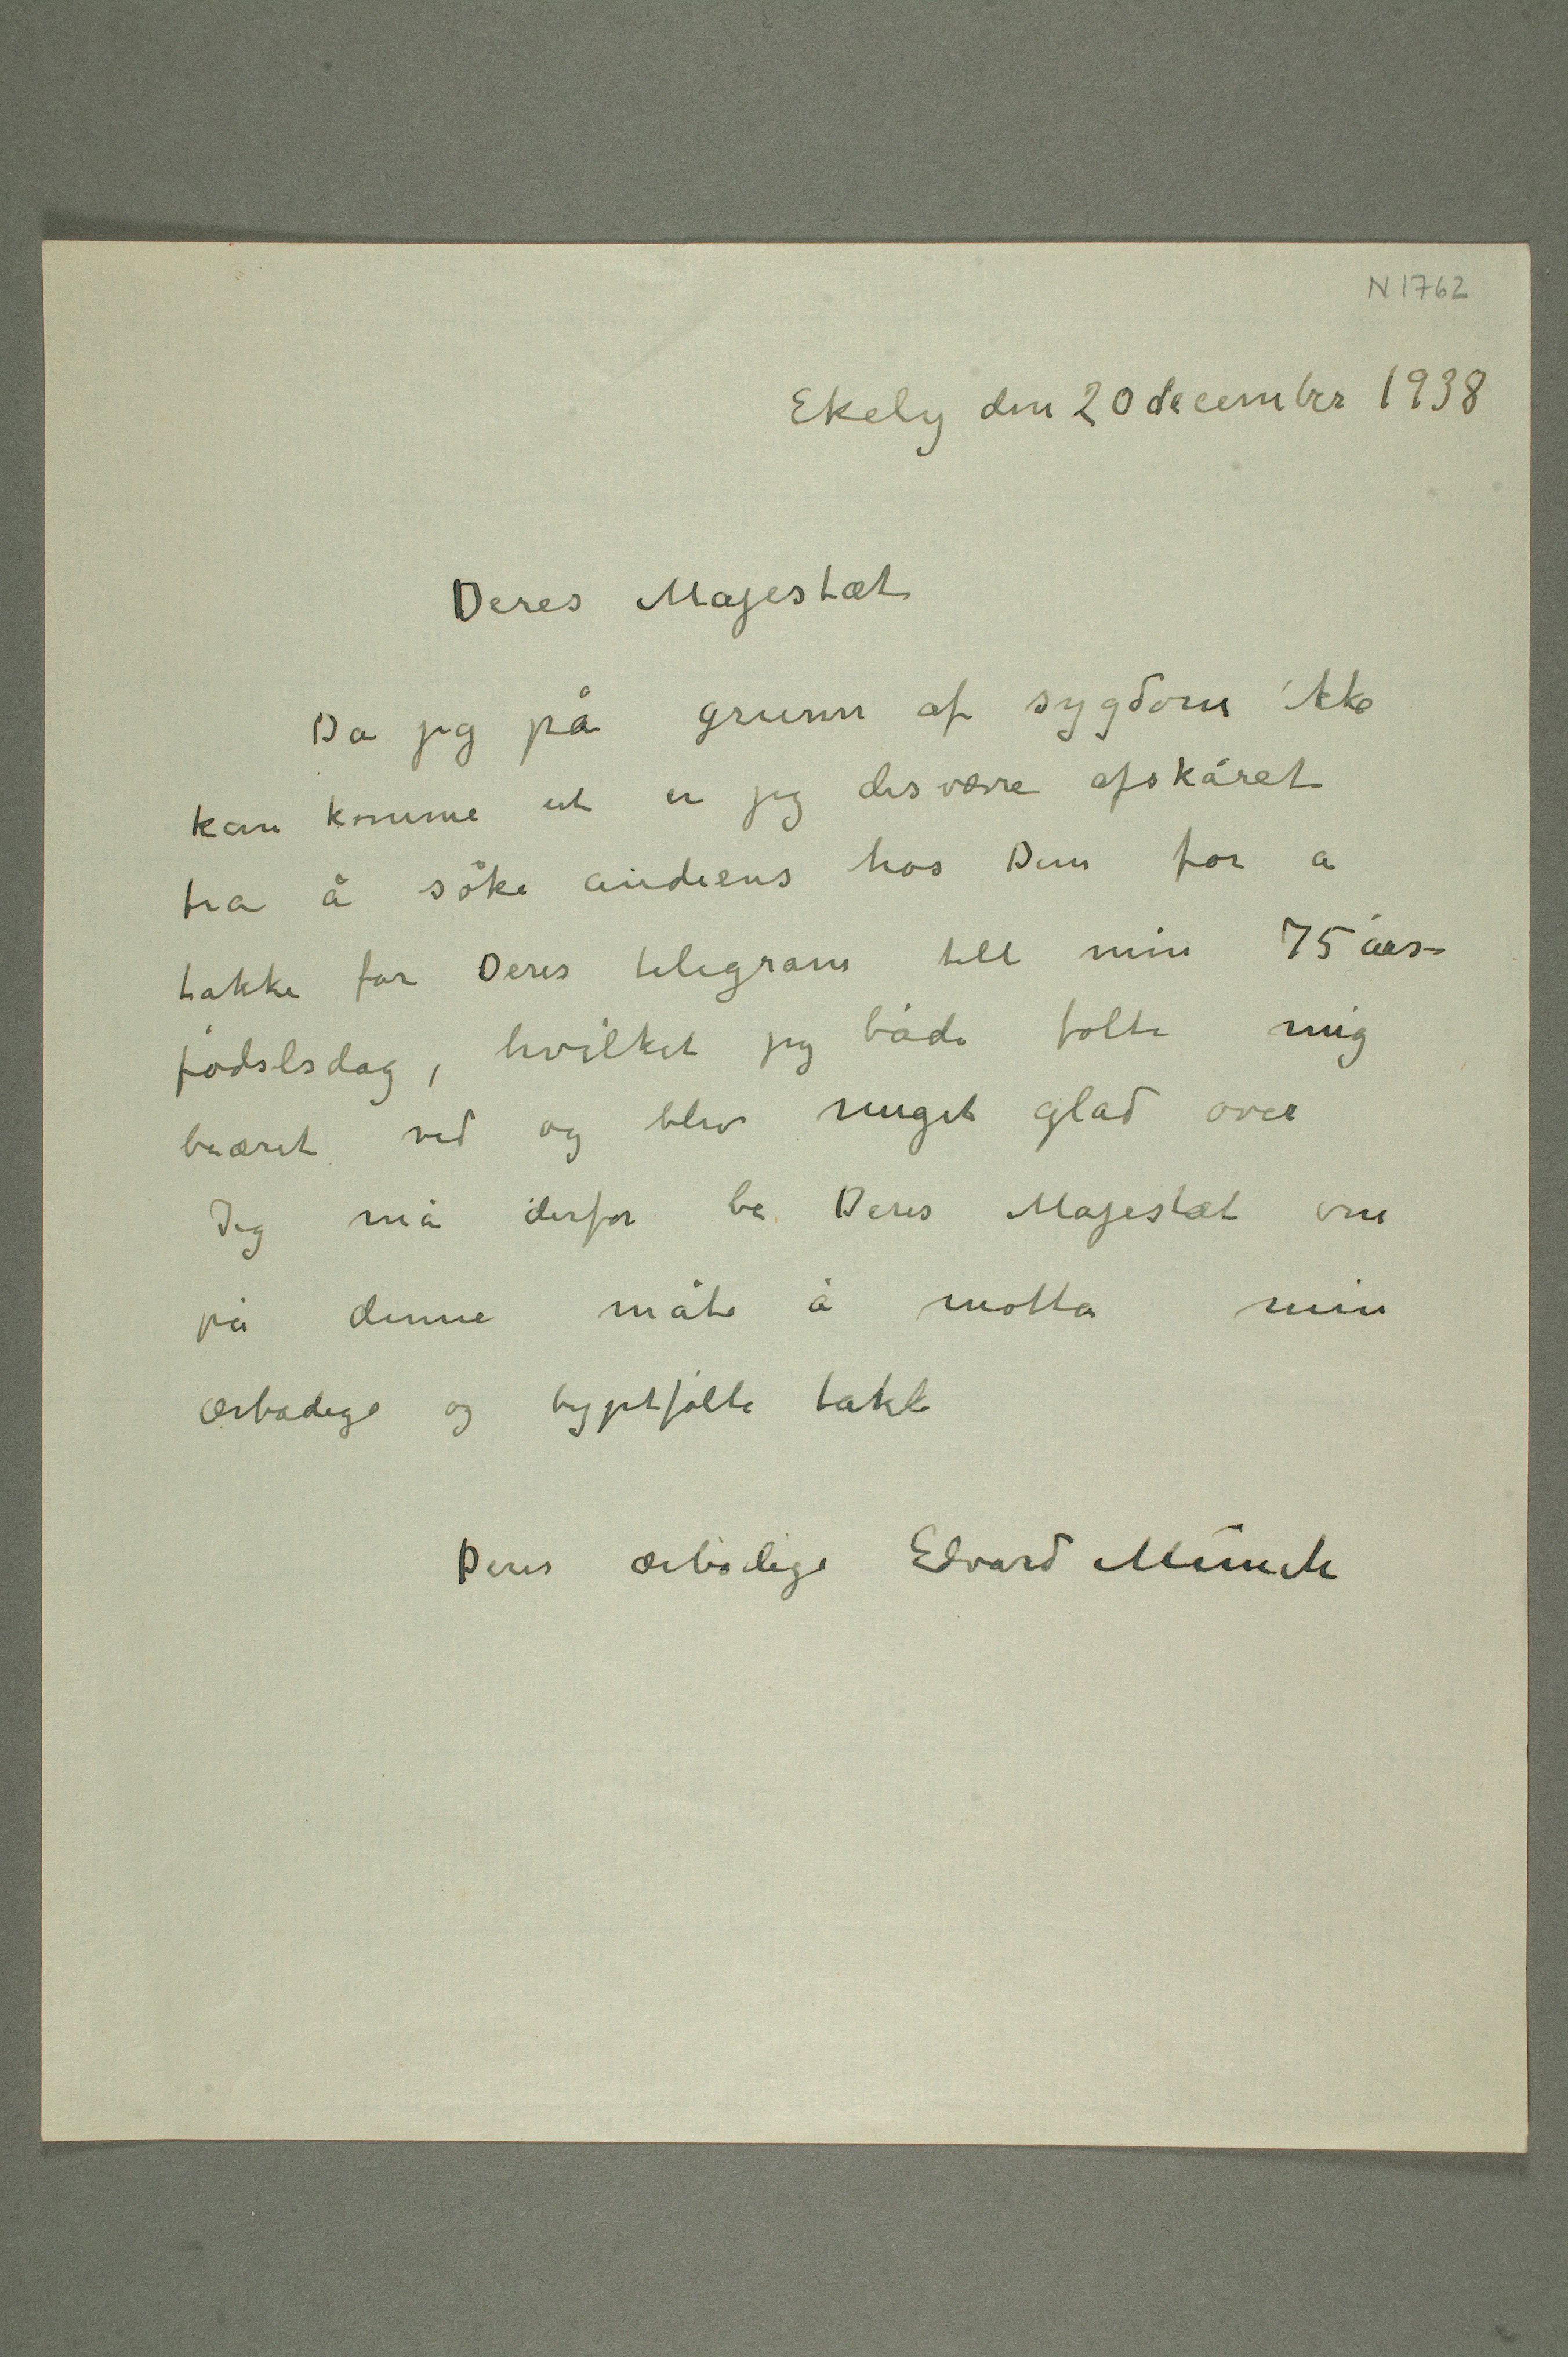 N 1762
Ekely den 20 december 1938
Deres Majestæt
Da jeg på grunn af sygdom ikke
kan komme ut er jeg desværre afskåret
fra å söke audiens hos Dem for a
takke for Deres telegram till min 75 års-
födslsdag, hvilket jeg både følte mig
beæret ved og blev meget glad over
Jeg må derfor be Deres Majestæt om
på denne måte å motta min
ærbødige og dyptfølte takk
Deres ærbödige Edvard Munch